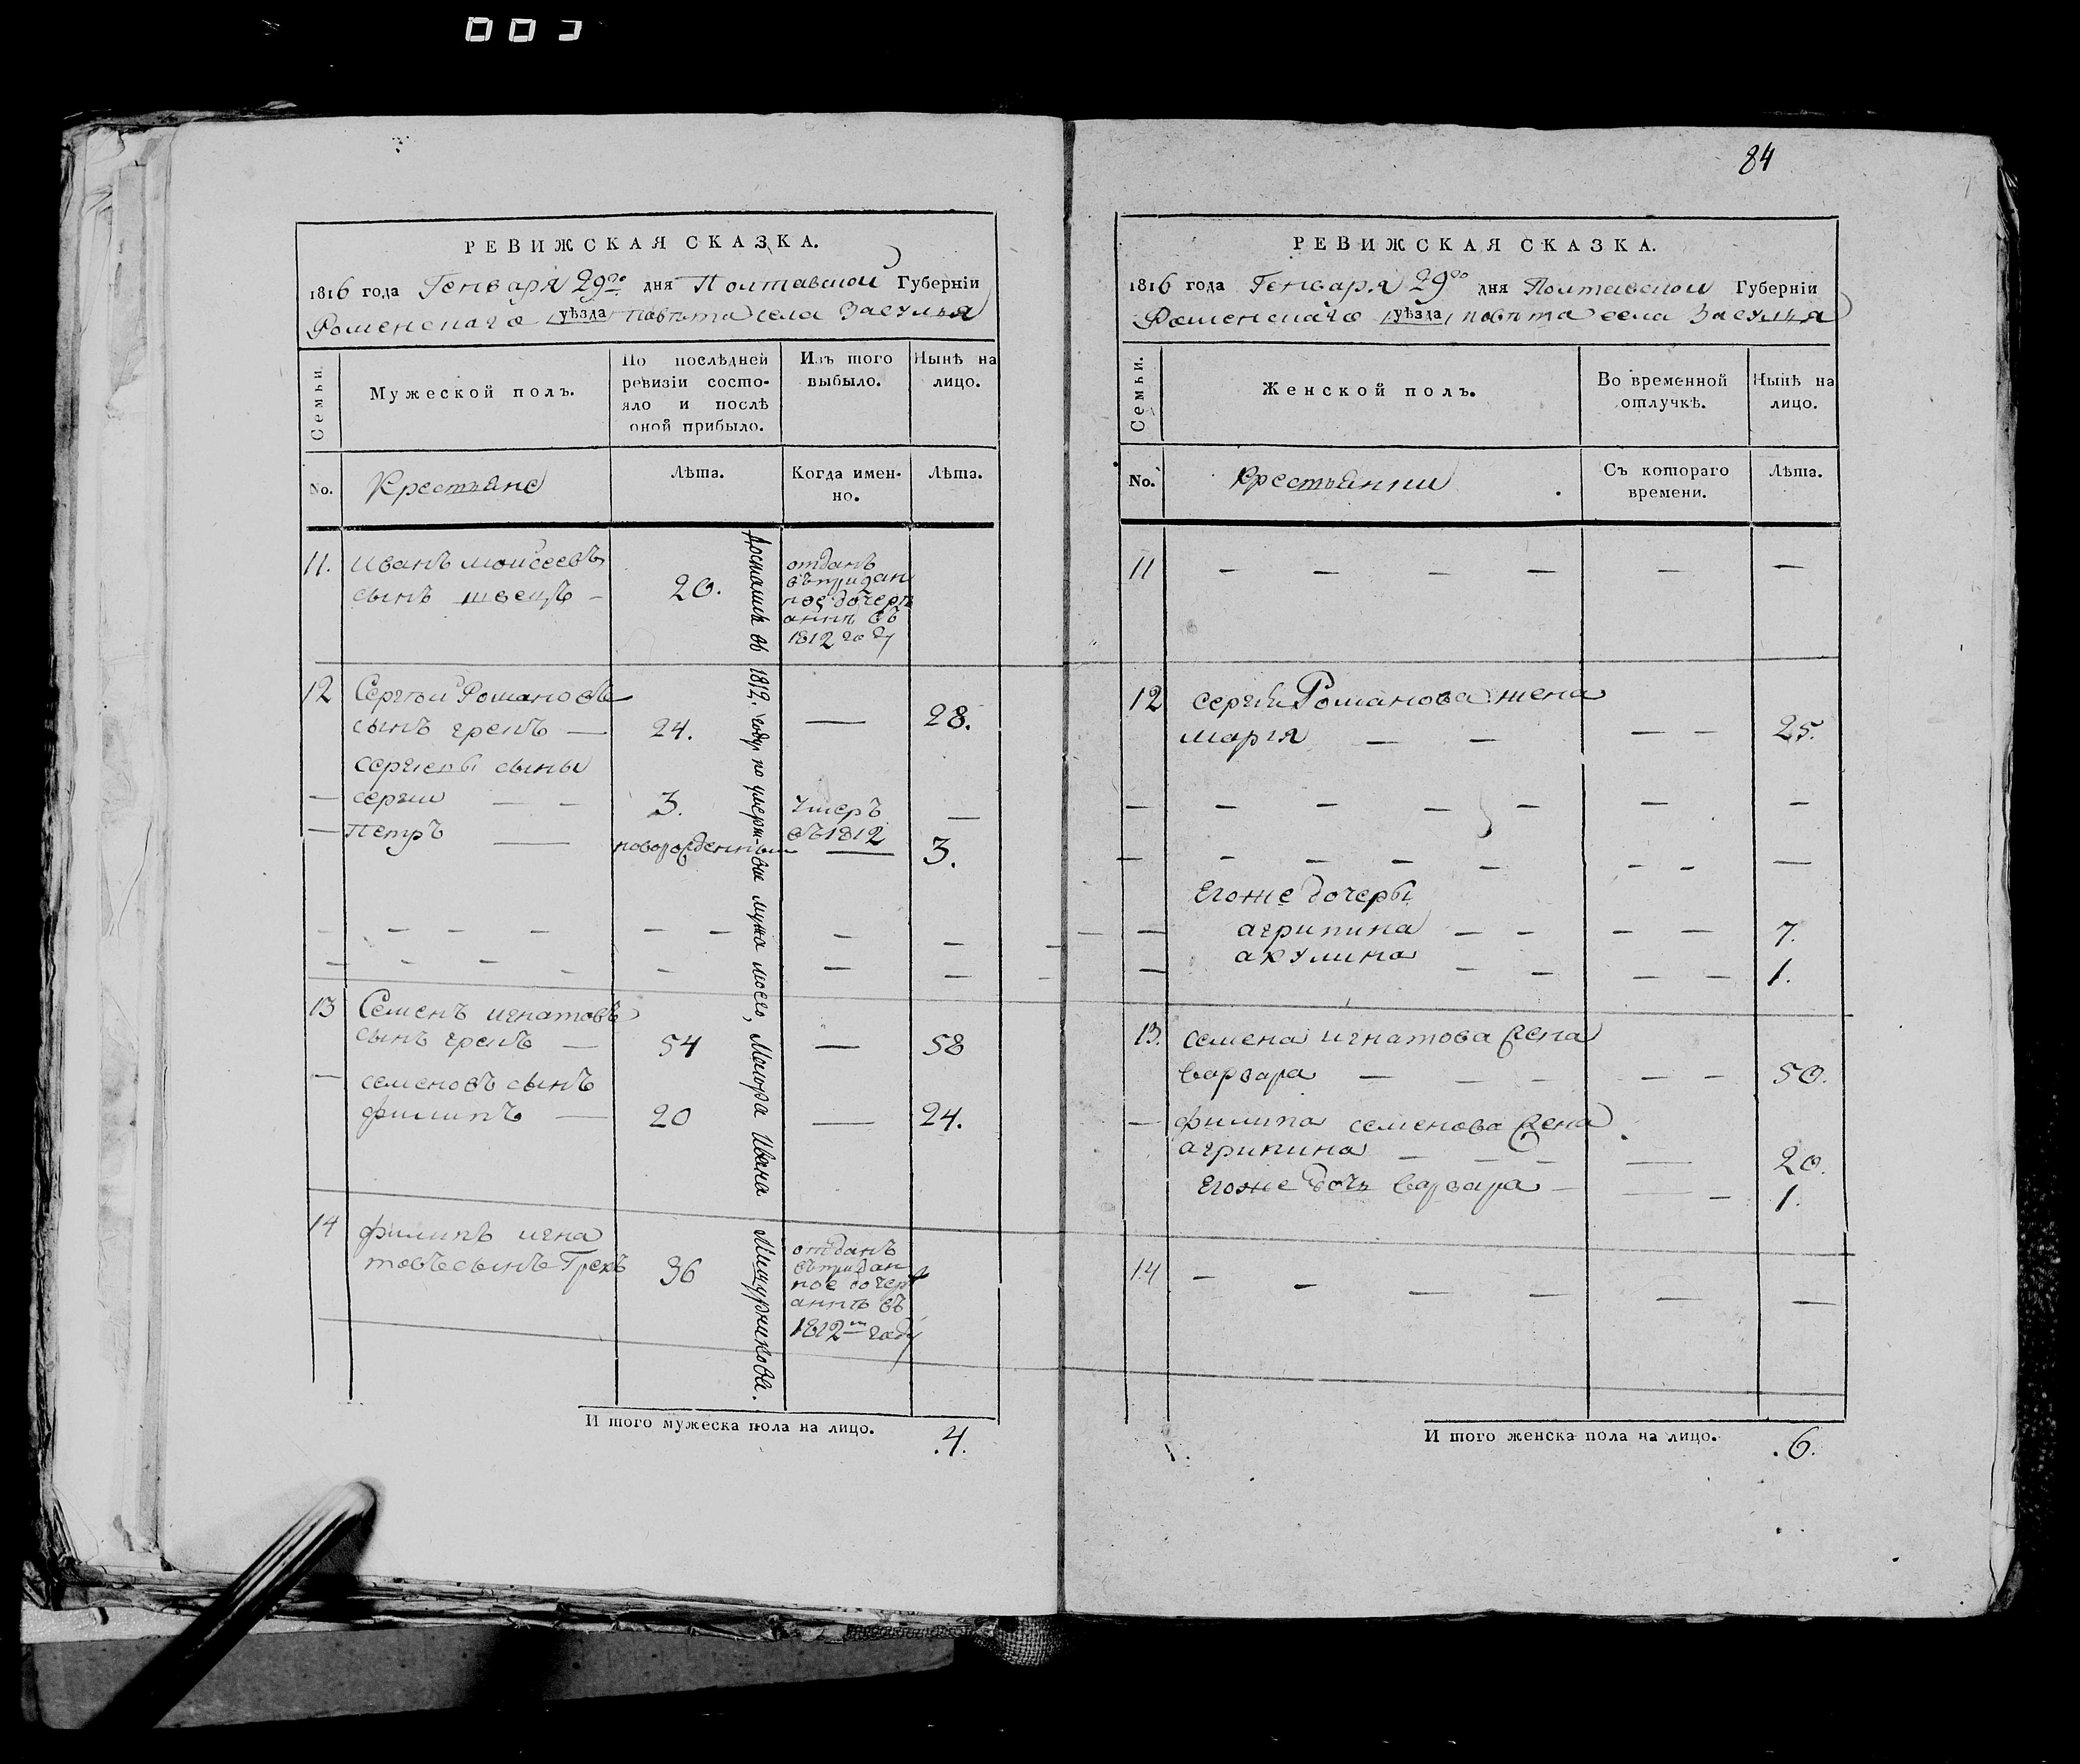 003
84
РЕВИЖСКАЯ СКАЗКА.
1816 года Генваря 29го дня Полтавской Губерніи
Роменскаго уѣзда повѣта села Засулья
Семьи.
Мужеской полъ.
По послѣдней
ревизіи состо-
яло и послѣ
оной прибыло.
Изъ того
выбыло.
Нынѣ на
лицо.
No.
Крестьяне
Лѣта.
Когда имен-
но.
Лѣта.
11. Иванъ Моисеевъ
сынъ Швецъ - 20.
отданъ
въ придан
ное дочерѣ
аннѣ въ
1812 году
12 Сергѣй Романовъ
сынъ грекъ — 24. — 28.
сергіевы сыны
— сергии — - 3. умеръ —
— Петръ — новорожденный въ 1812 — 3.
13 Семенъ игнатовъ
сынъ грекъ — 54 — 58
— семеновъ сынъ
филипъ — 20 — 24.
14 филипъ игна
товъ сынъ Грекъ 36
отданъ
въ придан
ное дочерѣ
аннѣ въ
1812м году
Достались въ 1812. году по умерт-вие мужа моего, Маиора Ивана Мищурникова.
И того мужеска пола на лицо. .4.
РЕВИЖСКАЯ СКАЗКА.
1816 года Генваря 29го дня Полтавской Губерніи
Роменскаго уѣзда повѣта села Засулья
Семьи.
Женской полъ.
Во временной
отлучкѣ.
Нынѣ на
лицо.
No.
Крестьянки
Съ котораго
времени.
Лѣта.
11 — — — — — —
12 сергия Романова жена
мария — — — - 25.
— — — — — — —
— — — — — — - —
Егоже дочеры
— агрипина — - - — 7.
— акулина — - — - 1.
13. семена игнатова жена
варвара — — - — - 50.
— филипа семенова жена
агрипина — — - — 20.
Егоже дочь варвара — — - 1.
14 — — — — — —
И того женска пола на лицо. .6.